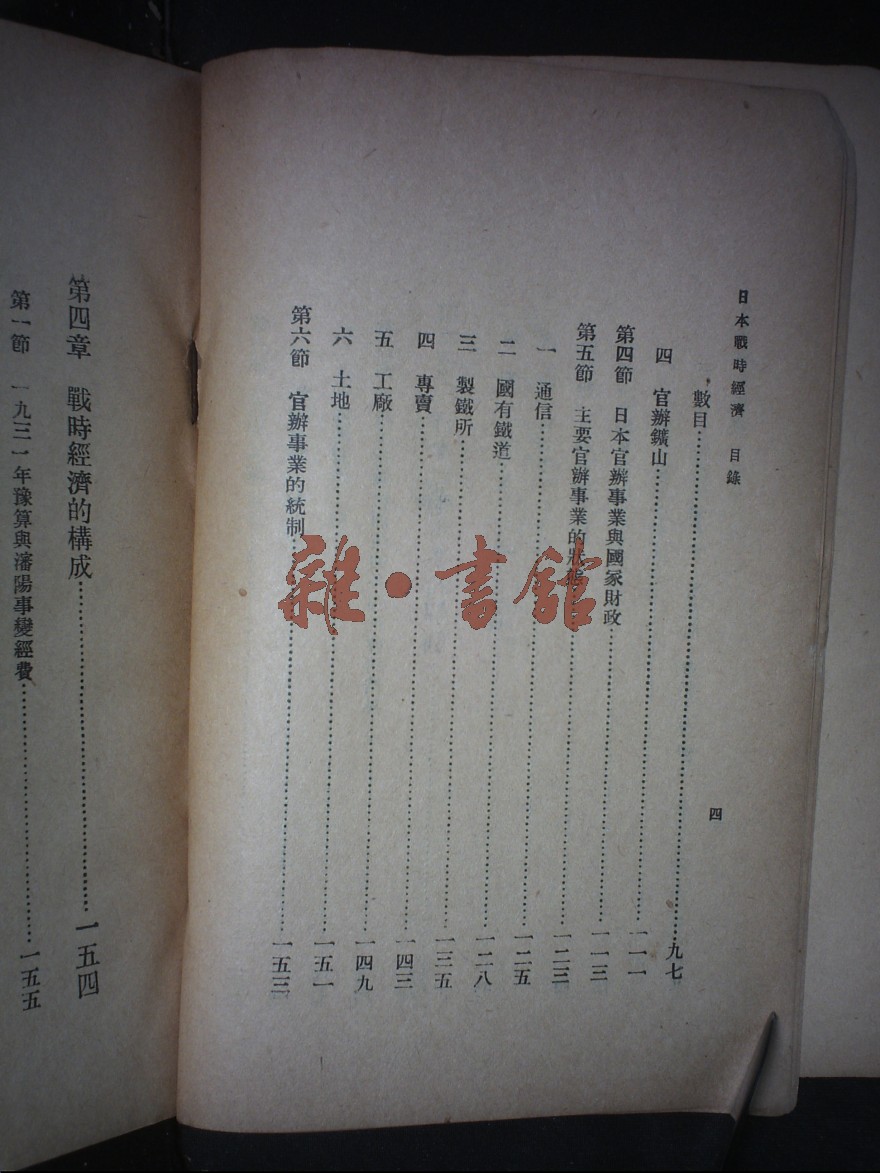 日本戰時經濟 目錄 四
數目……九七
四 官辦鑛山……一一一
第四節 日本官辦事業與國家財政……一一三
第五節 主要官辦事業的狀態……一二三
一 通信……一二五
二 國有鐵道……一二八
三 製鐵所……一三五
四 專賣……一四三
五 工廠……一四九
六 土地……一五一
第六節 官辦事業的統制……一五三
第四章 戰時經濟的構成……一五四
第一節 一九三一年豫算與瀋陽事變經費……一五五
雜·書館